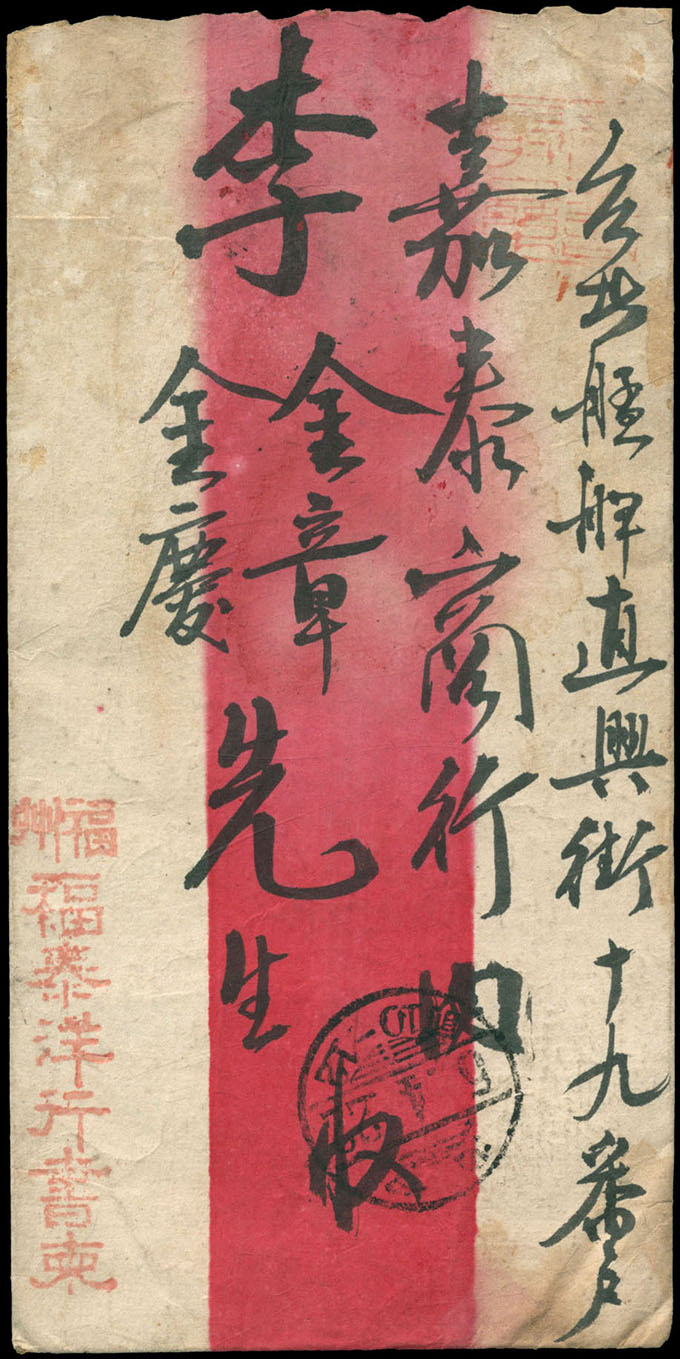 台北艋舺直興街十九番戶
嘉泰商行內
李金章金慶先生收
福州
福泰洋行書柬